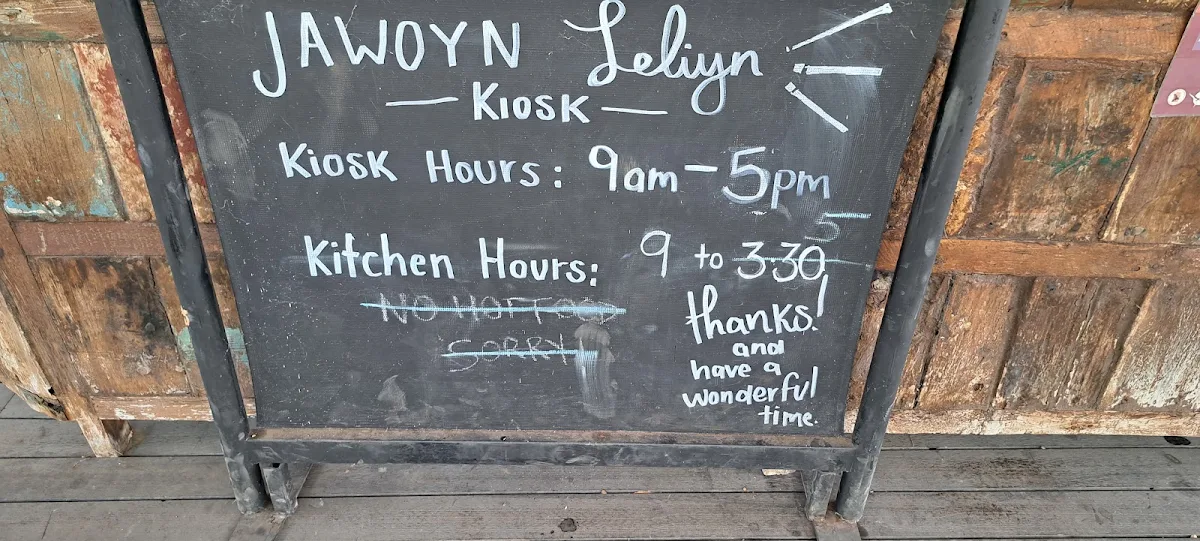 JAWOYN Leliyn
— Kiosk —
Kiosk Hours: 9am - 5pm
5
Kitchen Hours: 9 to 3.30
NO HOT FOOD
SORRY
thanks!
and
have a
wonderful
time.